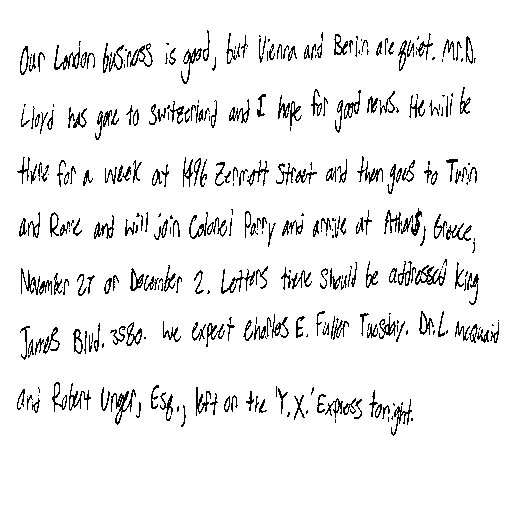 Our London business is good, but Vienna and Berlin are quiet. Mr. D.
Lloyd has gone to Switzerland and I hope for good news. He will be
there for a week at 1496 Zermott Street and then goes to Turin
and Rome and will join Colonel Parry and arrive at Athens, Greece,
November 27 or December 2. Letters there should be addressed King
James Blvd. 3580. We expect Charles E. Fuller Tuesday. Dr. L. McQuaid
and Robert Unger, Esq., left on the 'Y.X.' Express tonight.